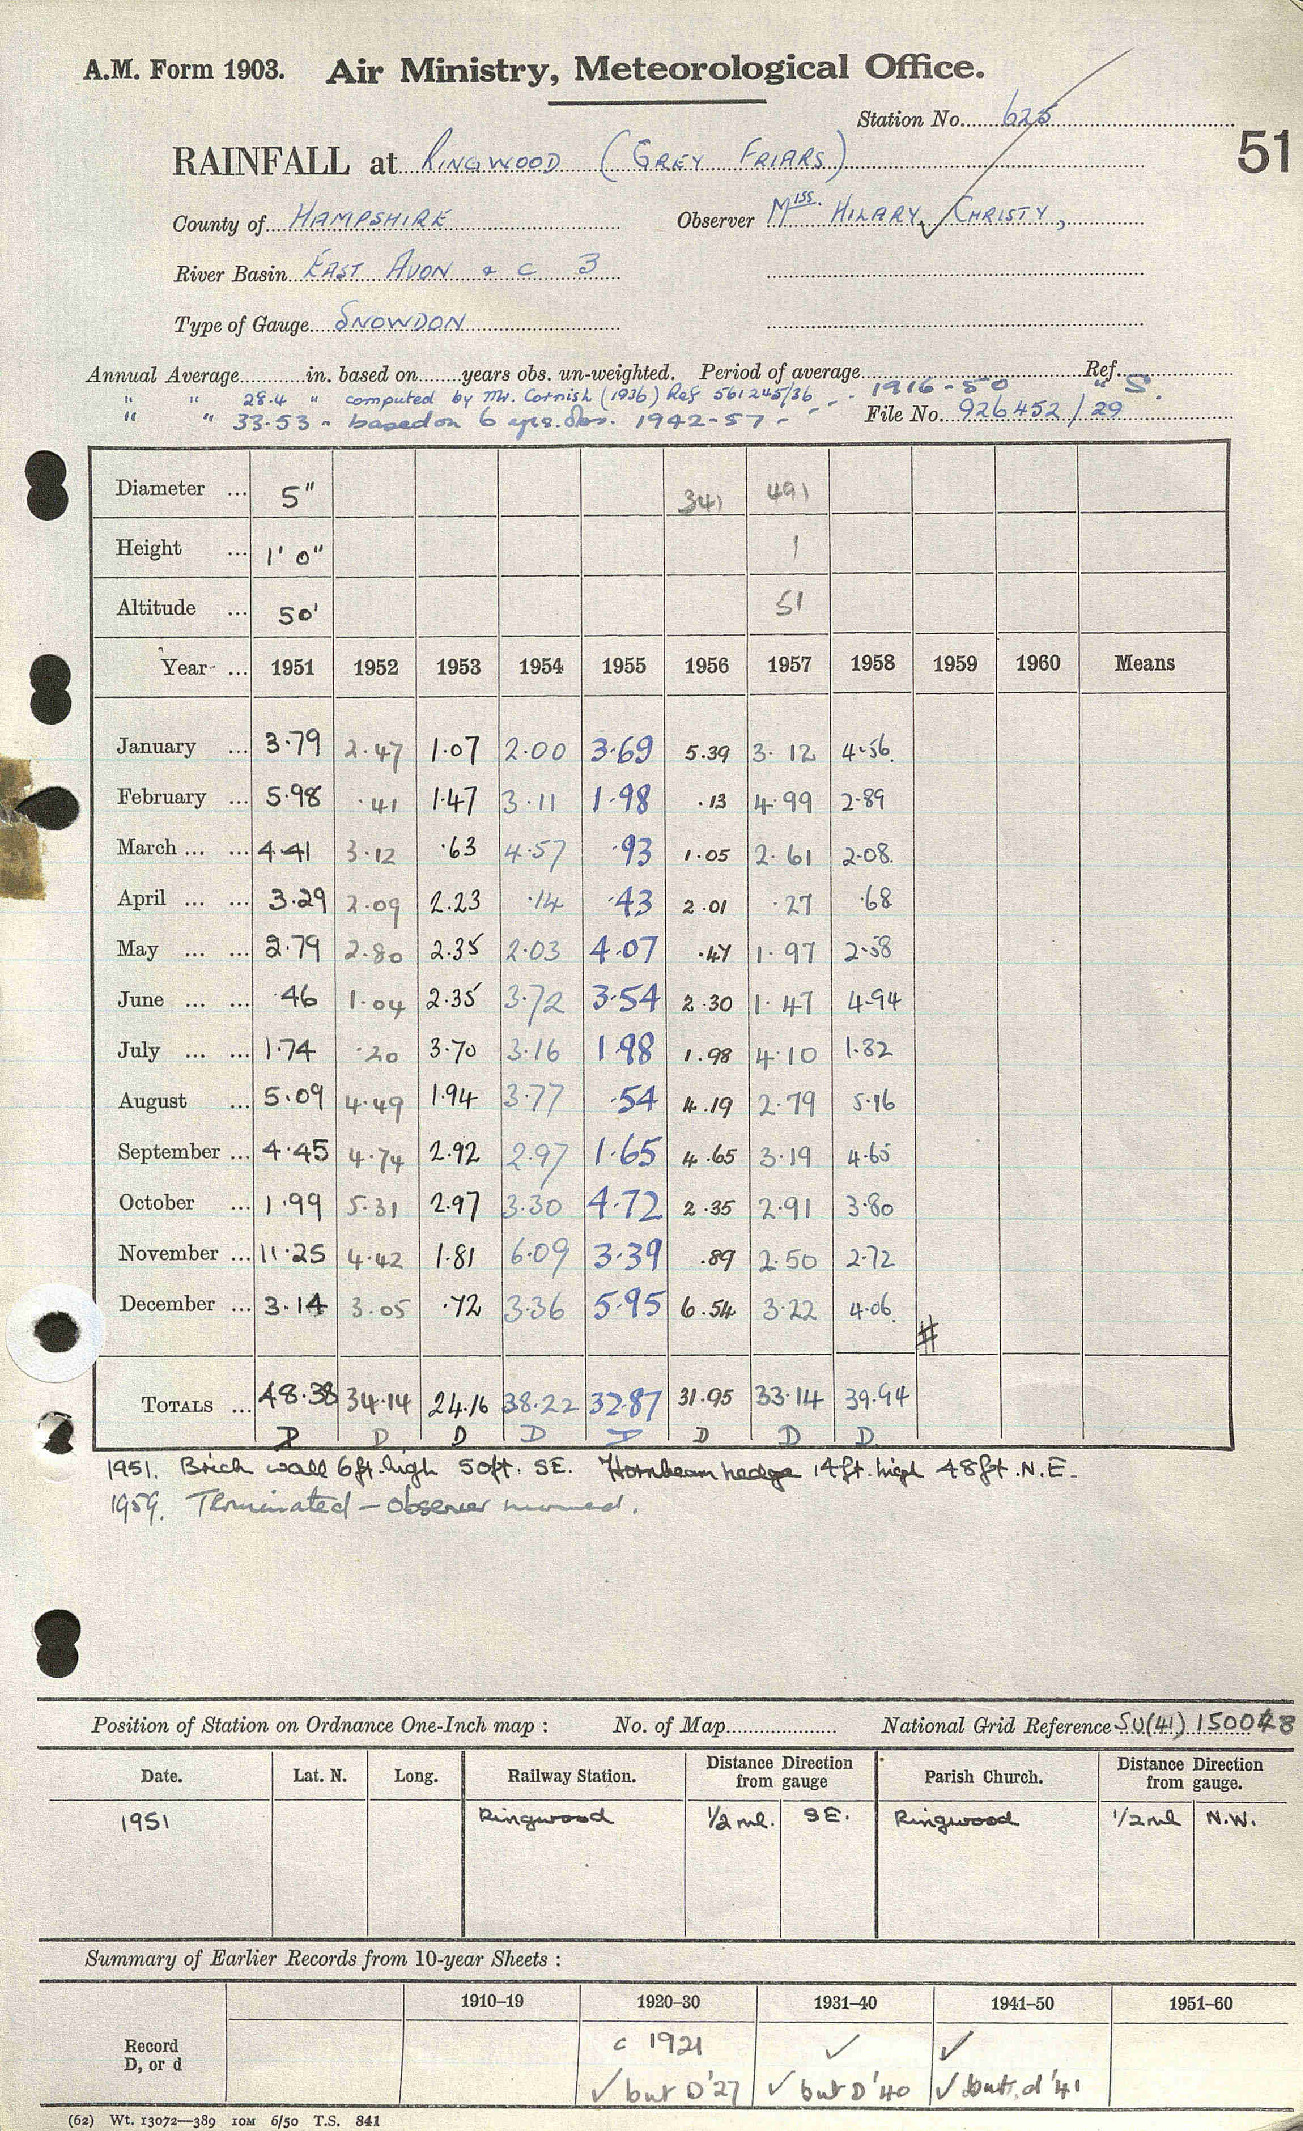 A.M. Form 1903. Air Ministry, Meteorological Office.
Station No. 625
51
RAINFALL at RINGWOOD (GREY FRIARS)
County of HAMPSHIRE Observer Miss. HILARY CHRISTY,
River Basin EAST AVON & C 3
Type of Gauge SNOWDON
Annual Average in. based on years obs. un-weighted. Period of average Ref.
" " 28.4 " computed by Mr. Cornish (1936) Ref 561245/36 1916-50 " S.
" " 33.53 " based on 6 yrs. obs. 1942-57 - File No. 926452/29
Diameter ... 5" 341 491
Height ... 1' 0" 1
Altitude ... 50' 51
Year ... 1951 1952 1953 1954 1955 1956 1957 1958 1959 1960 Means
January ... 3.79 2.47 1.07 2.00 3.69 5.39 3.12 4.56
February ... 5.98 .41 1.47 3.11 1.98 .13 4.99 2.89
March ... ... 4.41 3.12 .63 4.57 .93 1.05 2.61 2.08
April ... ... 3.29 2.09 2.23 .14 .43 2.01 .27 .68
May ... ... 2.79 2.80 2.35 2.03 4.07 .47 1.97 2.58
June ... ... .46 1.04 2.35 3.72 3.54 2.30 1.47 4.94
July ... ... 1.74 .20 3.70 3.16 1.98 1.98 4.10 1.82
August ... 5.09 4.49 1.94 3.77 .54 4.19 2.79 5.16
September ... 4.45 4.74 2.92 2.97 1.65 4.65 3.19 4.65
October ... 1.99 5.31 2.97 3.30 4.72 2.35 2.91 3.80
November ... 11.25 4.42 1.81 6.09 3.39 .89 2.50 2.72
December ... 3.14 3.05 .72 3.36 5.95 6.54 3.22 4.06
#
TOTALS ... 48.38 34.14 24.16 38.22 32.87 31.95 33.14 39.94
D D D D D D D D
1951. Brick wall 6ft. high 50ft. SE. Hornbeam hedge 14ft. high 48ft. N.E.
1959. Terminated - observer moved.
Position of Station on Ordnance One-Inch map : No. of Map National Grid Reference SU(41)
Date. Lat. N. Long. Railway Station. Distance Direction from gauge Parish Church. Distance Direction from gauge.
1951 Ringwood 1/2 ml. SE. Ringwood 1/2 ml N.W.
Summary of Earlier Records from 10-year Sheets :
1910–19 1920–30 1931–40 1941–50 1951–60
Record c 1921 ✓ ✓
D, or d ✓ but D '27 ✓ but D '40 ✓ but d '41
(62) Wt. 13072—389 10M 6/50 T.S. 841